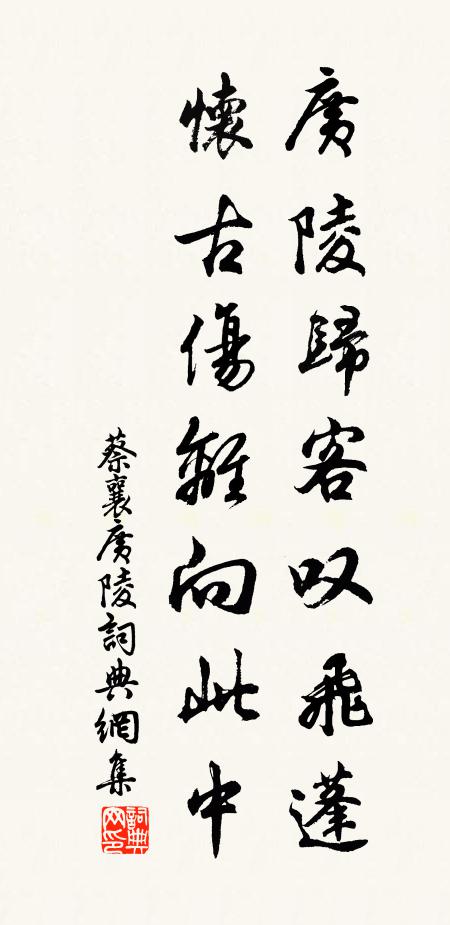 廣陵歸客叹飛蓬
懷古傷離向此中
蔡襄廣陵詞典網集
詞典网印